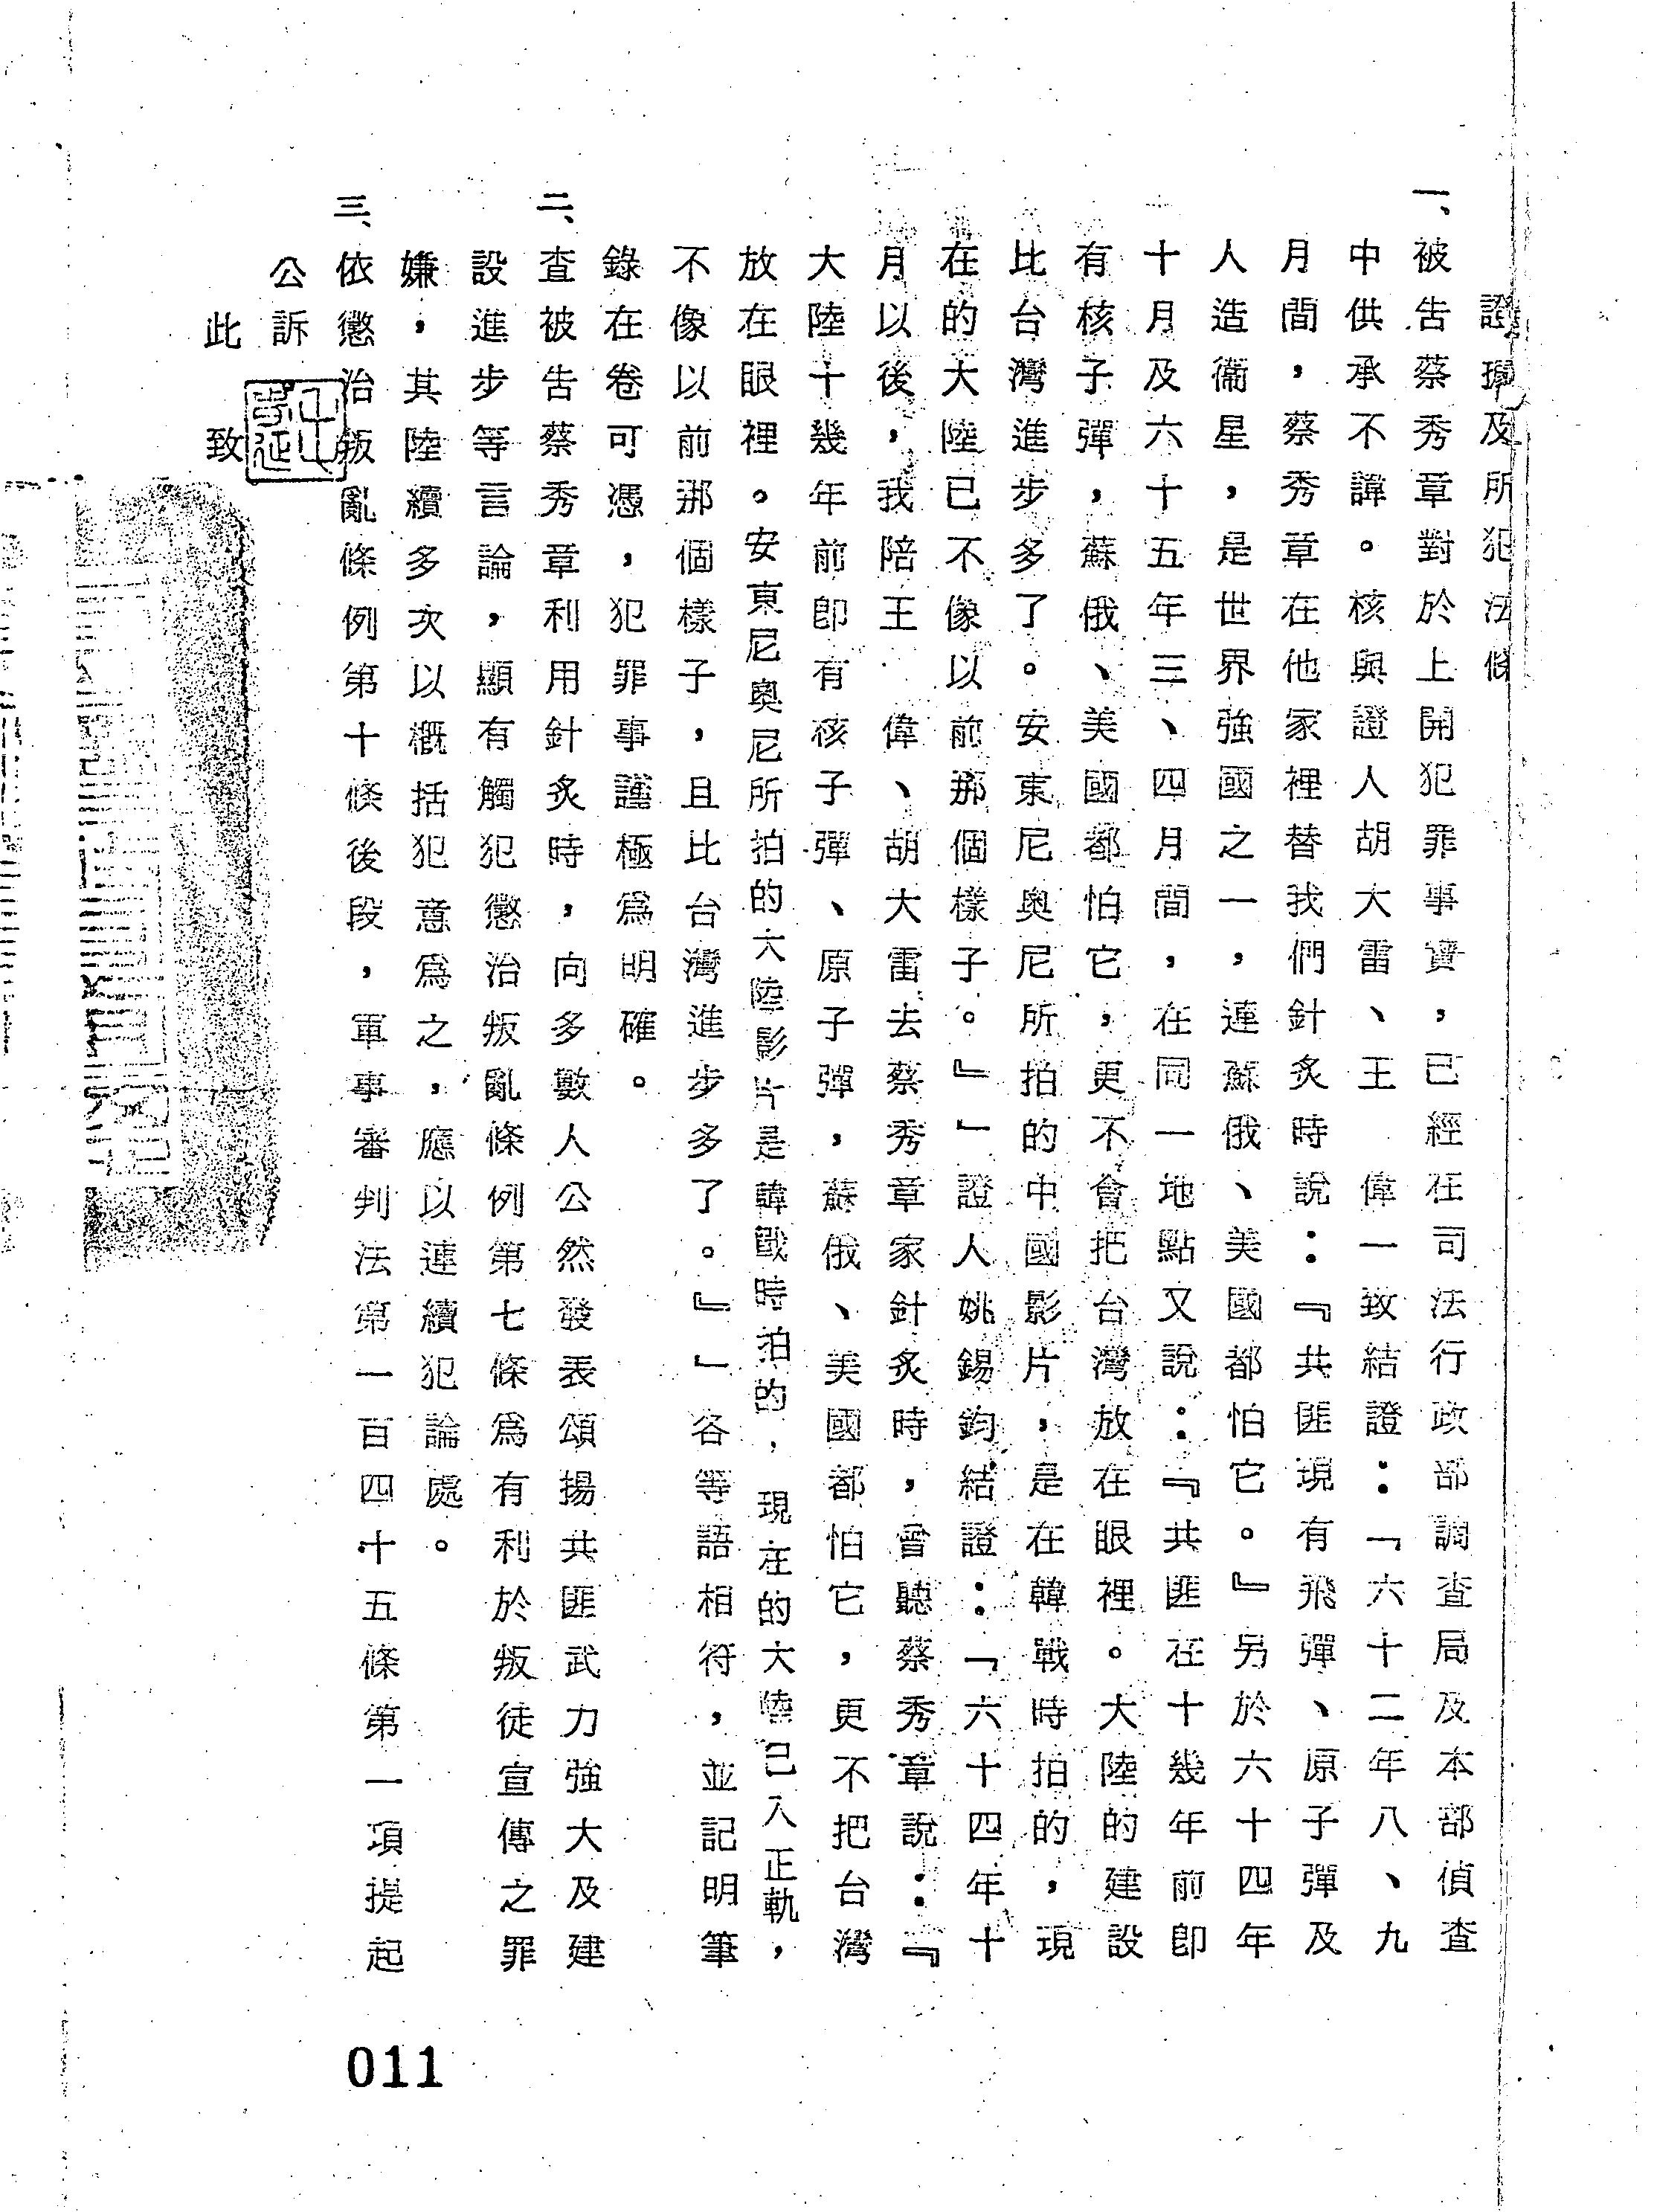 證據及所犯法條
一、被告蔡秀章對於上開犯罪事實，已經在司法行政部調查局及本部偵查
中供承不諱。核與證人胡大雷、王　偉一致結證：「六十二年八、九
月間，蔡秀章在他家裡替我們針炙時說：『共匪現有飛彈、原子彈及
人造衞星，是世界強國之一，連蘇俄、美國都怕它。』另於六十四年
十月及六十五年三、四月間，在同一地點又說：『共匪在十幾年前即
有核子彈，蘇俄、美國都怕它，更不會把台灣放在眼裡。大陸的建設
比台灣進步多了。安東尼奧尼所拍的中國影片，是在韓戰時拍的，現
在的大陸已不像以前那個樣子。』」證人姚錫鈞結證：「六十四年十
月以後，我陪王　偉、胡大雷去蔡秀章家針炙時，曾聽蔡秀章說：『
大陸十幾年前即有核子彈、原子彈，蘇俄、美國都怕它，更不把台灣
放在眼裡。安東尼奧尼所拍的大陸影片是韓戰時拍的，現在的大陸已入正軌，
不像以前那個樣子，且比台灣進步多了。』」各等語相符，並記明筆
錄在卷可憑，犯罪事證極為明確。
二、查被告蔡秀章利用針炙時，向多數人公然發表頌揚共匪武力強大及建
設進步等言論，顯有觸犯懲治叛亂條例第七條為有利於叛徒宣傳之罪
嫌，其陸續多次以概括犯意為之，應以連續犯論處。
三、依懲治叛亂條例第十條後段，軍事審判法第一百四十五條第一項提起
公訴
此　致
011